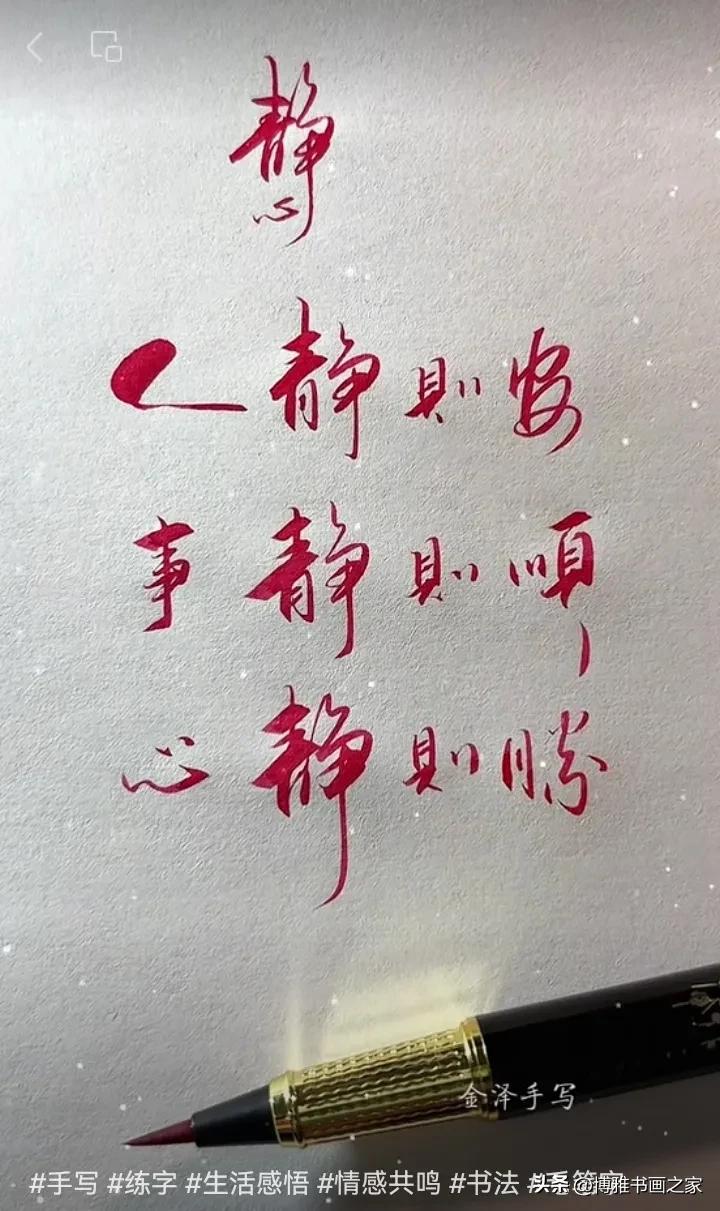 静心
人静則安
事静則順
心静則勝
金泽手写
#手写 #练字 #生活感悟 #情感共鸣 #书法
头条 @博雅书画之家